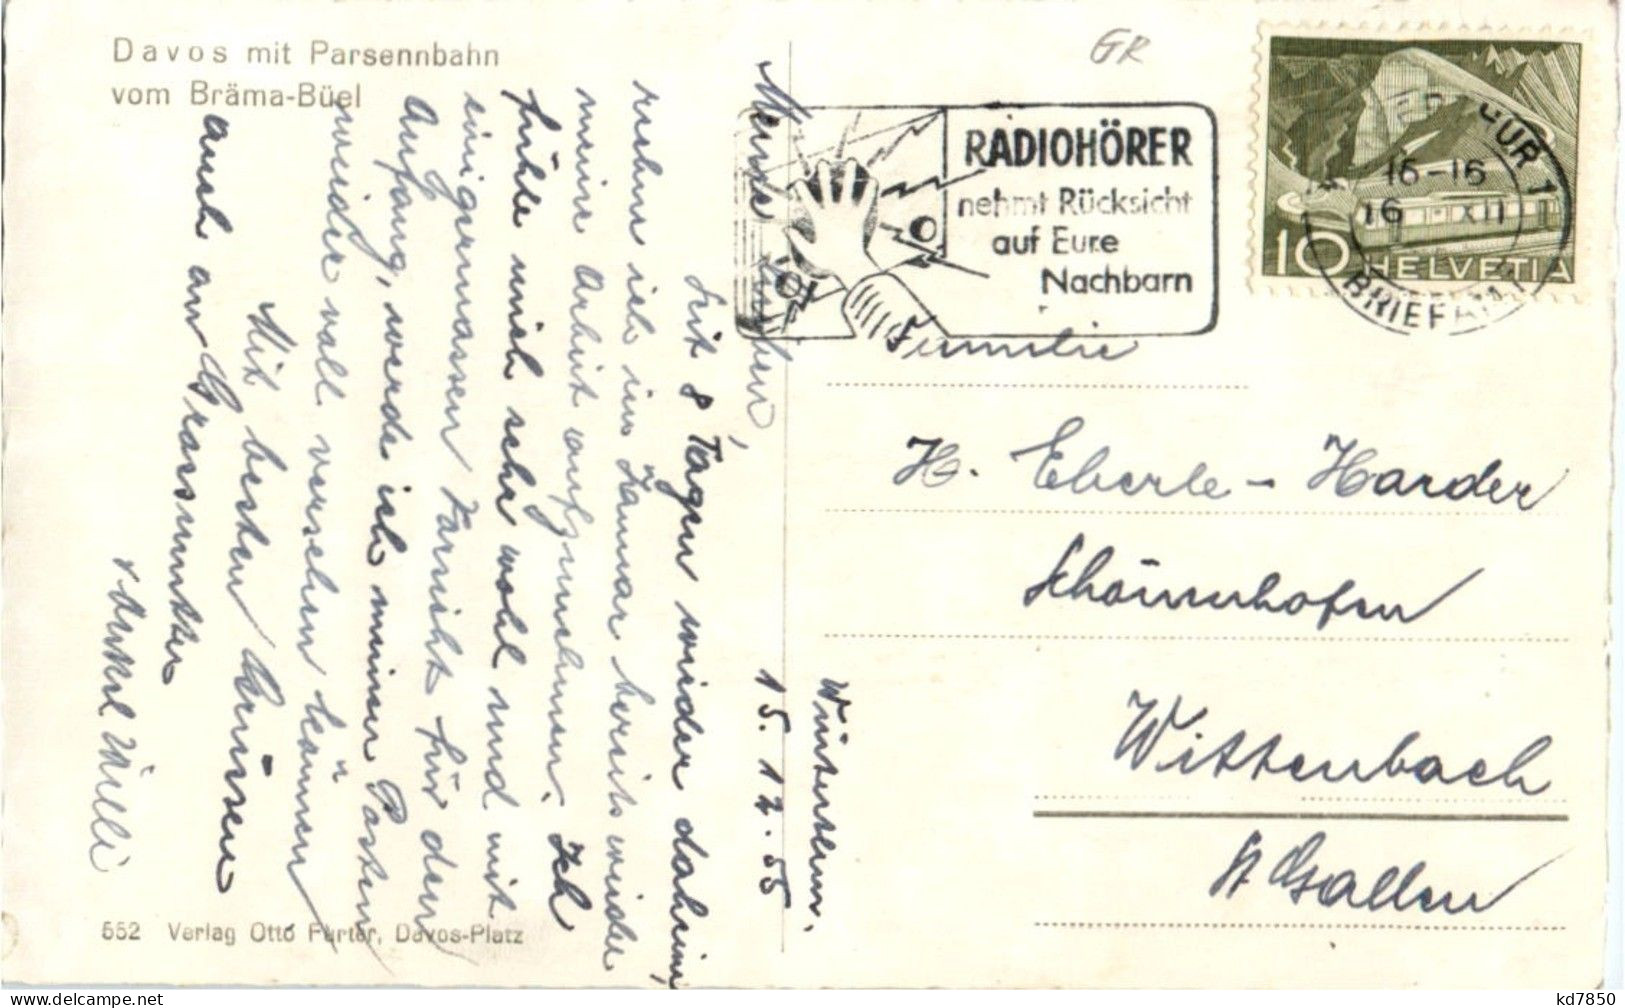 Davos mit Parsennbahn
vom Bräma-Büel
GR
RADIOHÖRER
nehmt Rücksicht
auf Eure
Nachbarn
CUR 1
16-16
16 XII
BRIEFA
10 HELVETIA
Familie
H. Eberle-Harder
Schönenhofen
Wittenbach
St Gallen
15. 12. 55
Meine Lieben,
Seit 8 Tagen wieder daheim,
ruehm ich im Januar bereits wieder
meine Arbeit aufzunehmen. Ich
fühle mich sehr wohl und mit
einigermassen Vorsicht für den
Anfang, werde ich meinen Posten
wieder voll versehen können
Mit besten Grüssen
auch an Grossmutter
552 Verlag Otto Furter, Davos-Platz